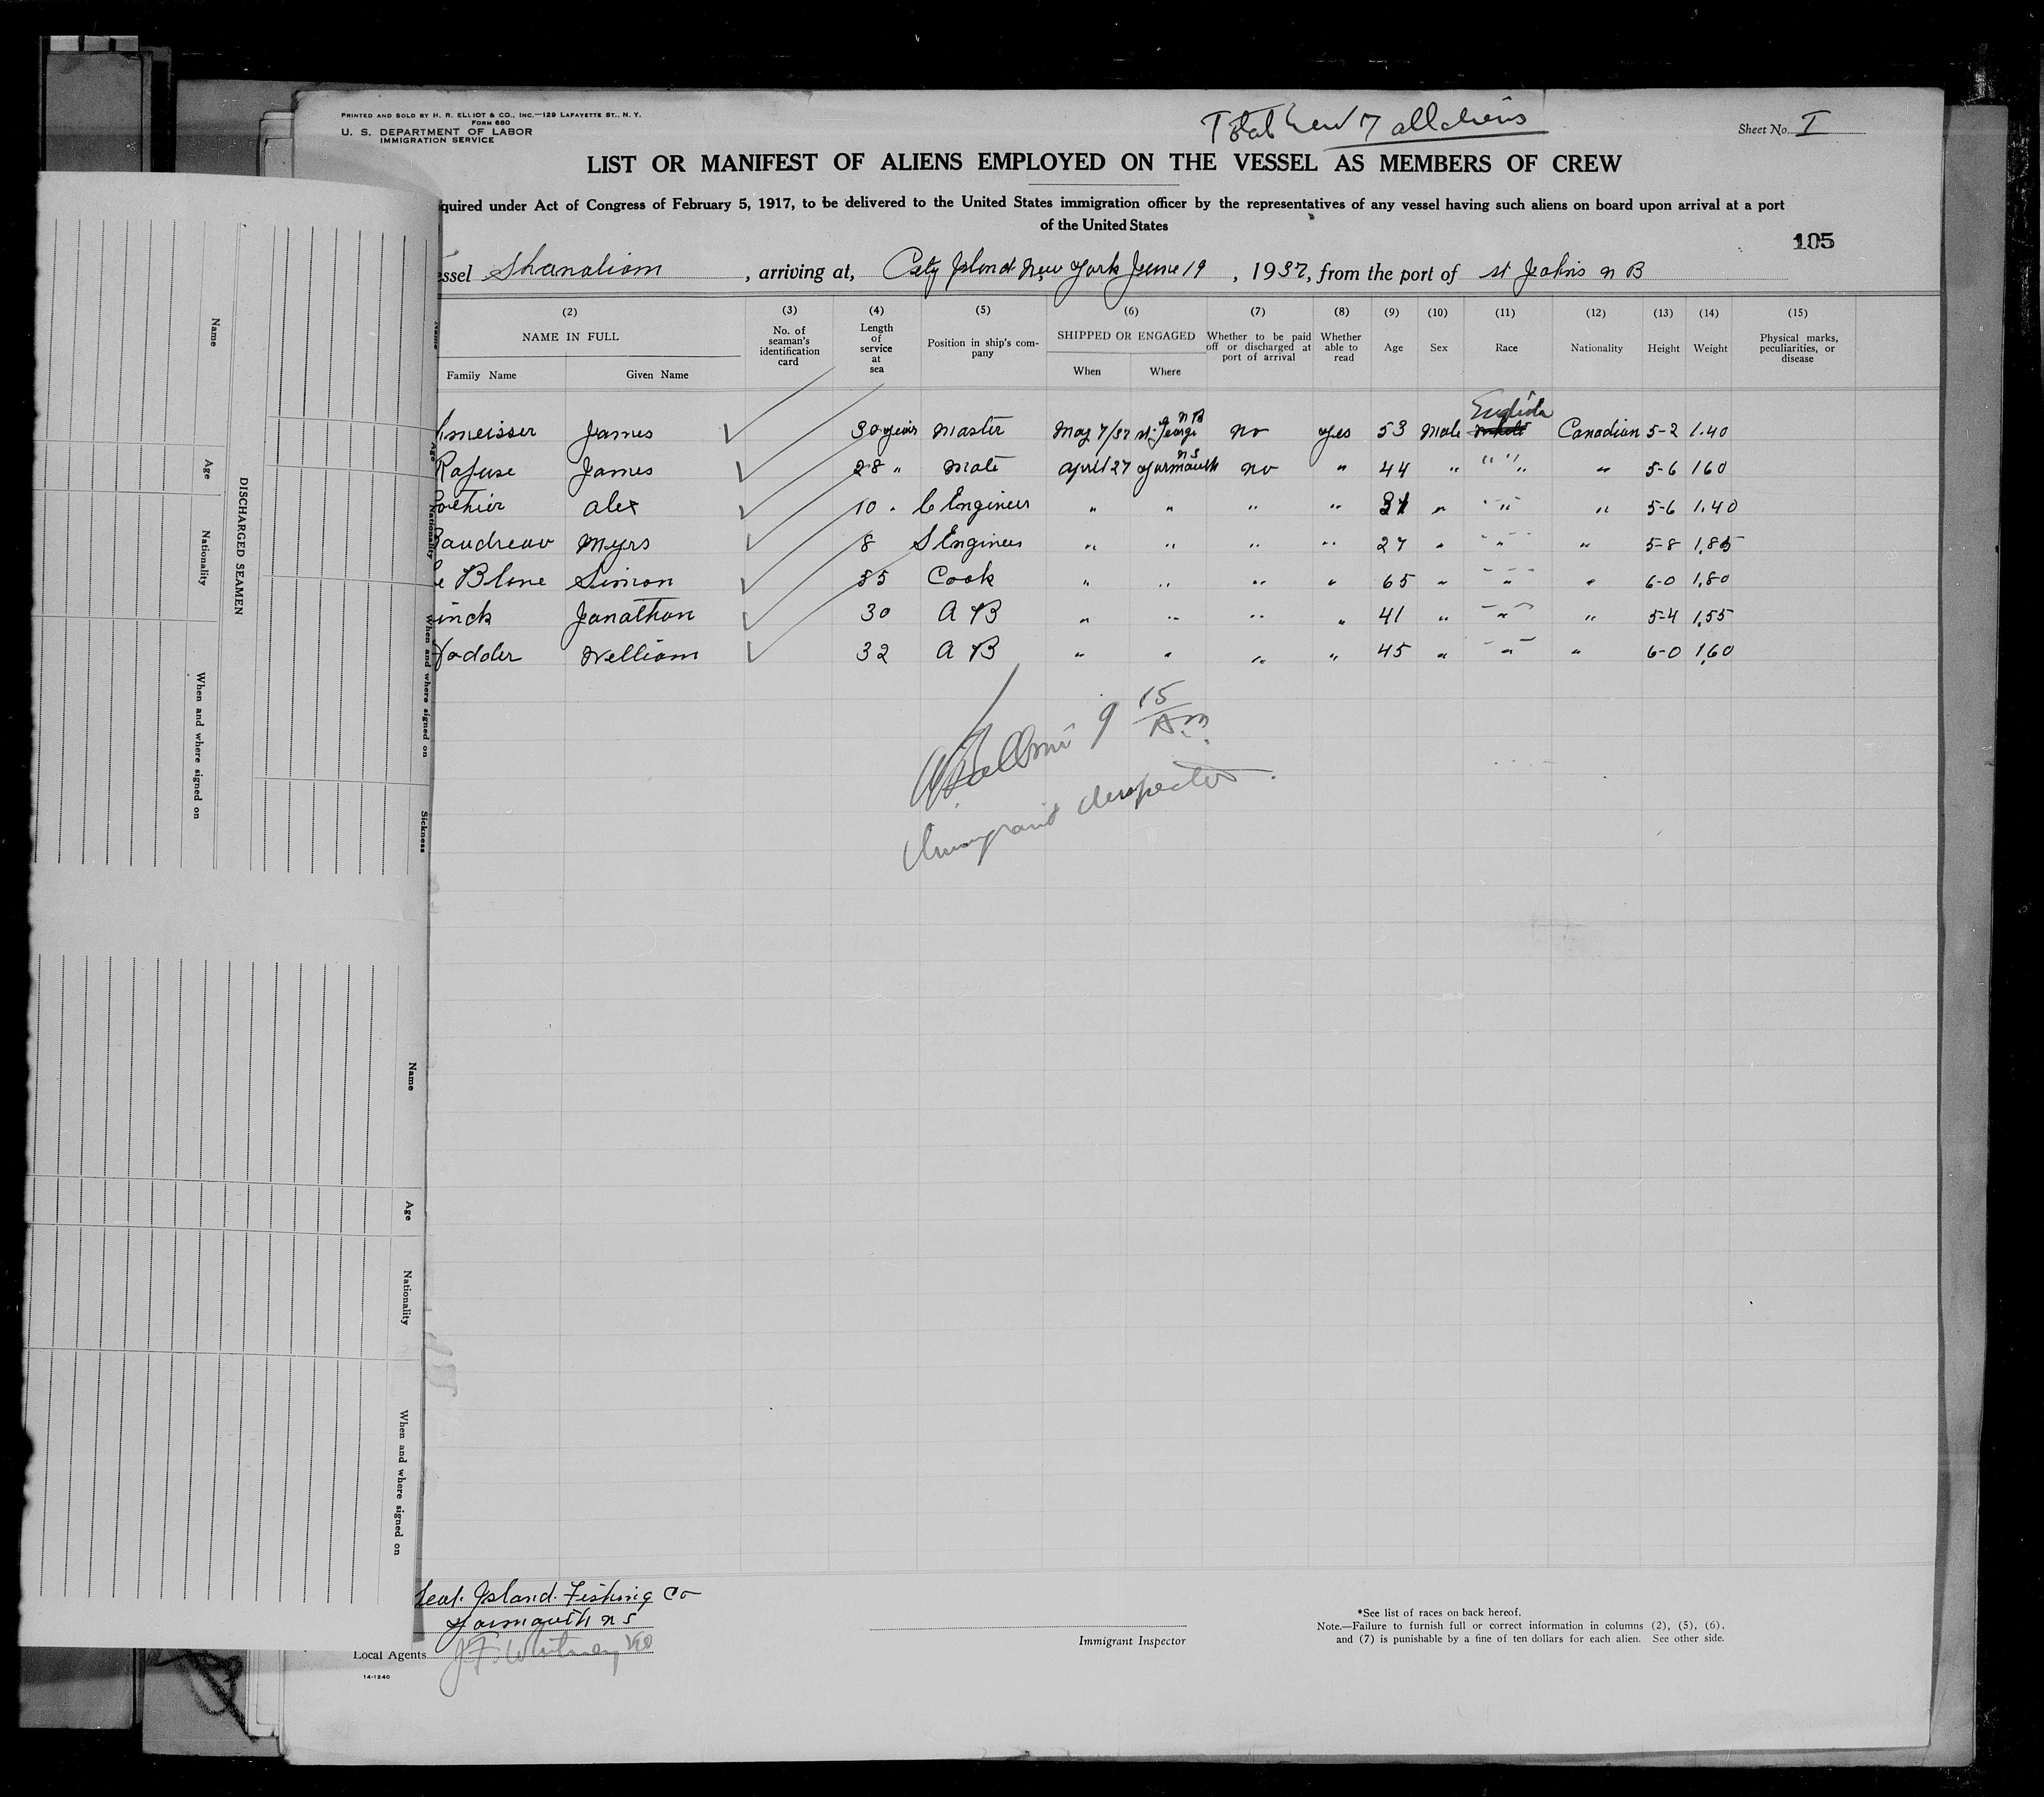 PRINTED AND SOLD BY H. R. ELLIOT & CO., INC.—129 LAFAYETTE ST., N. Y.
FORM 680
U. S. DEPARTMENT OF LABOR
IMMIGRATION SERVICE
Total Crew 7 all aliens
Sheet No. I
LIST OR MANIFEST OF ALIENS EMPLOYED ON THE VESSEL AS MEMBERS OF CREW
quired under Act of Congress of February 5, 1917, to be delivered to the United States immigration officer by the representatives of any vessel having such aliens on board upon arrival at a port
of the United States
105
ssel Shanalian, arriving at, City Island New York June 19, 1937, from the port of st Johns n B
(2) (3) (4) (5) (6) (7) (8) (9) (10) (11) (12) (13) (14) (15)
NAME IN FULL No. of seaman's identification card Length of service at sea Position in ship's company SHIPPED OR ENGAGED Whether to be paid off or discharged at port of arrival Whether able to read Age Sex Race Nationality Height Weight Physical marks, peculiarities, or disease
Family Name Given Name When Where
English
meisser James 30 years master May 7/37 st. George n B no yes 53 male Canadian 5-2 1.40
Rafuse James 28 " mate April 27 Yarmouth n s no " 44 " " " " 5-6 160
othier alex 10 " C Engineer " " " " " " " 5-6 1.40
Baudreau Myrs 8 S Engineer " " " " 27 " " " 5-8 1,85
e Blanc Simon 55 Cook " " " " 65 " " " 6-0 1,80
inck Jonathon 30 A B " " " " 41 " " " 5-4 1,55
odder William 32 A B " " " " 45 " " " 6-0 1,60
9 15 A.m.
Immigrant Inspector
DISCHARGED SEAMEN
Name
Age
Nationality
When and where signed on
Name
Age
Nationality
When and where signed on
Sickness
Name
Age
Nationality
When and where signed on
Seal. Island. Fishing Co
Yarmouth n s
Local Agents J. F. Whitney Co
14-1240
Immigrant Inspector
*See list of races on back hereof.
Note.—Failure to furnish full or correct information in columns (2), (5), (6),
and (7) is punishable by a fine of ten dollars for each alien. See other side.